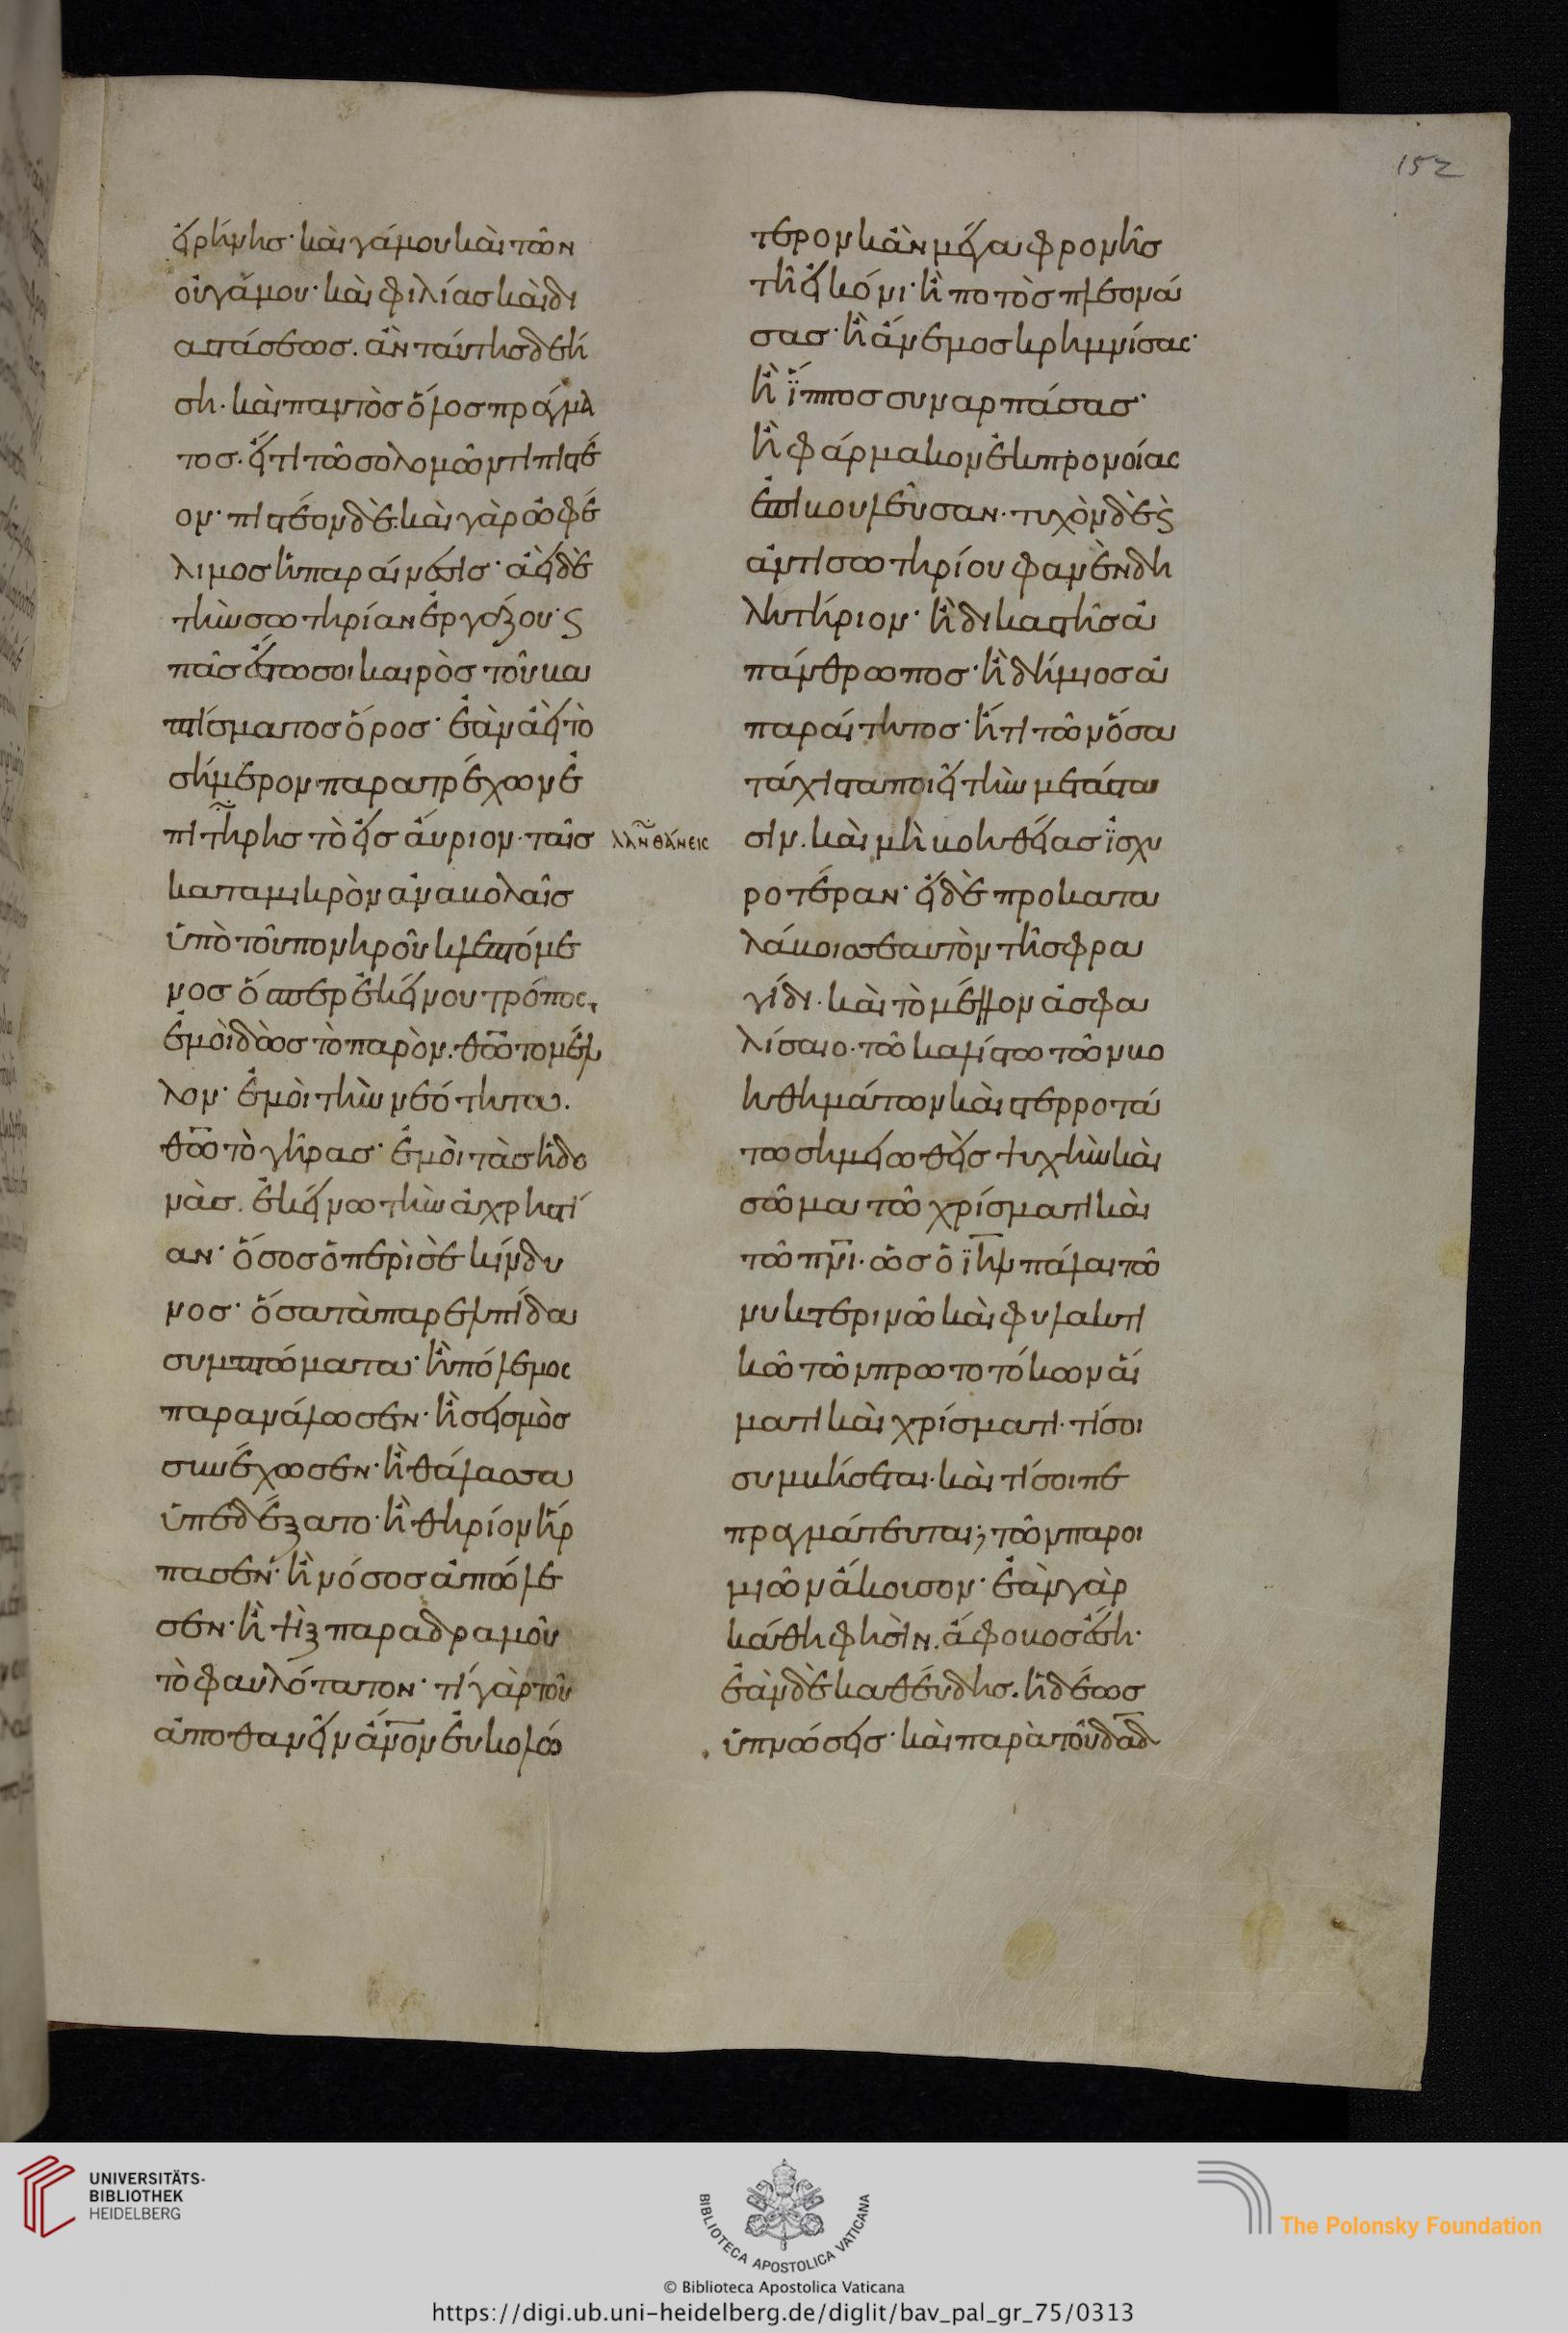 152
εἰρήνης· καὶ γάμου καὶ τῶν
οὐ γάμου· καὶ φιλίας καὶ δι
αστάσεως. ἂν ταύτης δεή
ση. καὶ παντὸς ὅλος πράγμα
τος. εἴ τι τῶ σολομῶντι πιστέ
ον· πιστέον δὲ. καὶ γὰρ ὠφέ
λιμος ἡ παραίνεσις· ἀεὶ δὲ
τὴν σωτηρίαν ἐργάζου· ϛ
πᾶς ἔστω σοι καιρὸς τοῦ βα
πτίσματος ὅρος· ἐὰν ἀεὶ τὸ
σήμερον παρατρέχων ἐ
πιτηρῆς τὸ εἰς αὔριον. ταῖς
λανθάνεις
κατα μικρὸν ἀναβολαῖς
ὑπὸ τοῦ πονηροῦ κλεπτόμε
νος ὅσπερ ἐκείνου τρόπος,
ἐμοὶ δὸς τὸ παρὸν. θῶ το μέλ
λον· ἐμοὶ τὴν νεότητα.
θῶ τὸ γῆρας· ἐμοὶ τὰς ἡδο
νὰς. ἐκείνω τὴν ἀχρηστί
αν· ὅσος ὁ περὶ σὲ κίνδυ
νος· ὅσα τὰ παρ ελπίδα
συμπτώματα· ἢ πόλεμος
παρανάλωσεν· ἢ σεισμὸς
συνέχωσεν· ἢ θάλασσα
ὑπεδέξατο· ἢ θηρίον ἥρ
πασεν· ἢ νόσος ἀπώλε
σεν· ἢ ψὶξ παραδραμοῦ
τὸ φαυλότατον· τί γὰρ τοῦ
ἀποθανεῖν ἄνον εὐκολώ
τερον κἂν μέγα φρονῆς
τῆ εἰκόνι· ἢ ποτὸς πλεονά
σας· ἢ ἄνεμος κρημνίσας·
ἢ ἵππος συναρπάσας·
ἢ φάρμακον ἐκ προνοίας
ἐπιβουλεῦσαν. τυχὸν δὲ ϛ
ἀντι σωτηρίου φανὲν δη
λητήριον· ἢ δικαστὴς ἀ
πάνθρωπος· ἢ δήμιος ἀ
παραίτητος· ἤ τι τῶν ὅσα
τάχιστα ποιεῖ τὴν μετάστα
σιν. καὶ μὴ βοηθείας ἰσχυ
ροτέραν· εἰ δὲ προκατα
λάβοις σεαυτὸν τῆ σφρα
γίδι. καὶ τὸ μέλλον ἀσφα
λίσαιο. τῶ καλίστω τῶν βο
ηθημάτων καὶ στερροτά
τω σημειωθεὶς ψυχὴν καὶ
σῶμα τῶ χρίσματι καὶ
τῶ πνι. ὡς ὁ ιηλ πάλαι τῶ
νυκτερινῶ καὶ φυλακτι
κῶ τῶν πρωτοτόκων αἵ
ματι καὶ χρίσματι. τί σοι
συμβήσεται. καὶ τί σοι πε
πραγμάτευται; τῶν παροι
μιῶν ἄκουσον· ἐὰν γὰρ
κάθη φησὶν. ἄφοβος ἔση·
ἐὰν δὲ καθεύδης. ἡδέως
ὑπνώσεις· καὶ παρὰ τοῦ δαδ
UNIVERSITÄTS-
BIBLIOTHEK
HEIDELBERG
BIBLIOTECA APOSTOLICA VATICANA
The Polonsky Foundation
© Biblioteca Apostolica Vaticana
https://digi.ub.uni-heidelberg.de/diglit/bav_pal_gr_75/0313